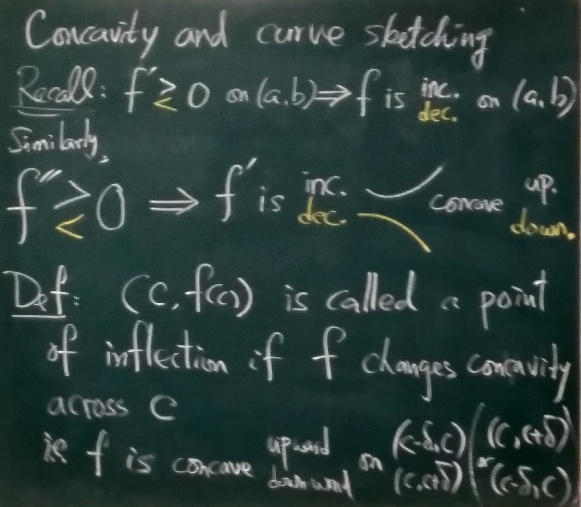 Concavity and curve sketching
Recall: f' ≷ 0 on (a,b) ⇒ f is inc. dec. on (a,b)
Similarly,
f'' ≷ 0 ⇒ f' is inc. dec. concave up. down.
Def: (c, f(c)) is called a point
of inflection if f changes concavity
across c
ie f is concave upward downward on (c-δ,c) (c,c+δ) / (c,c+δ) or (c-δ,c)